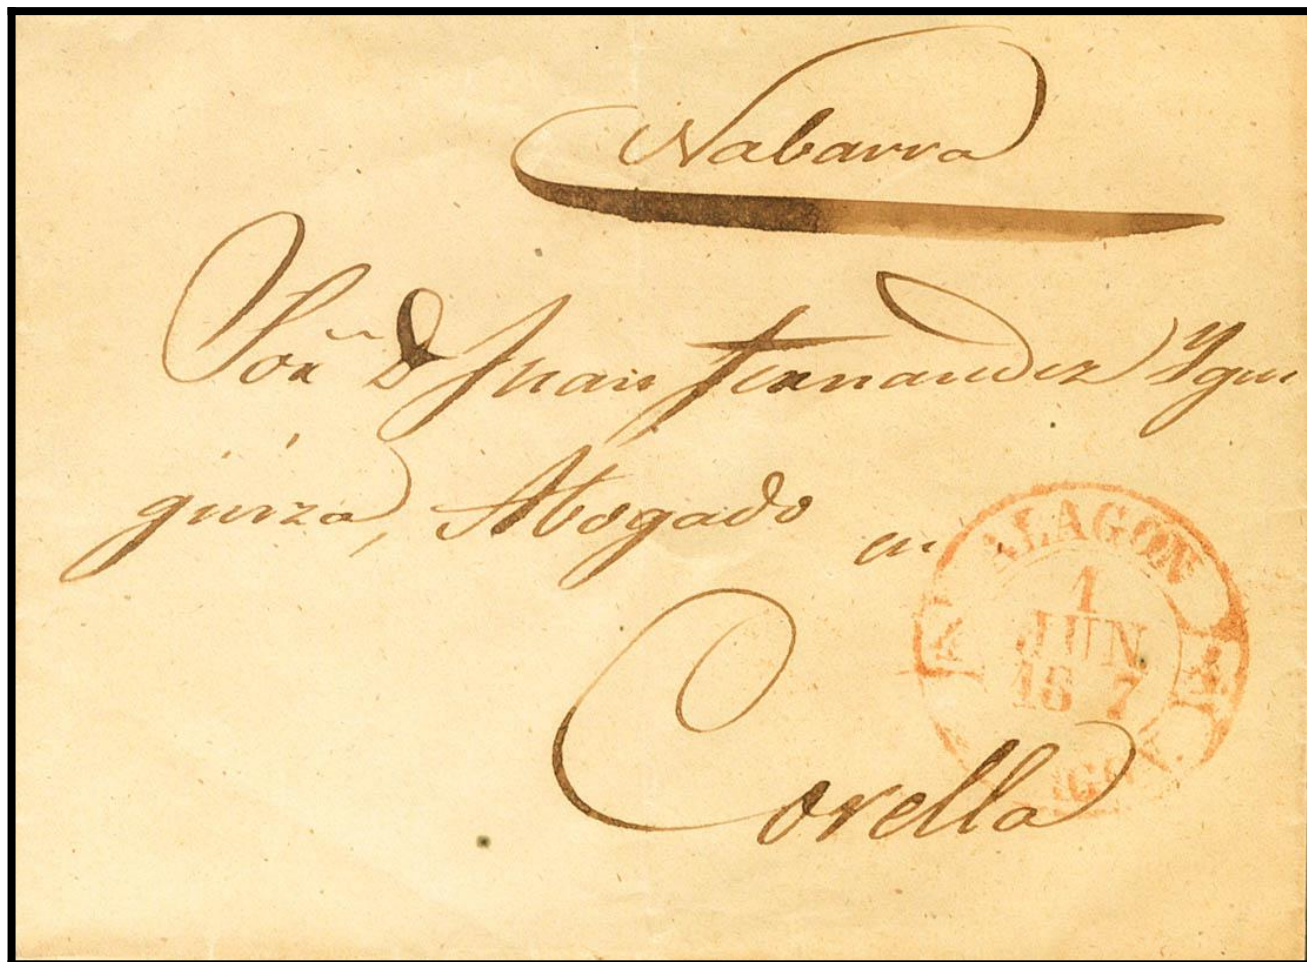 Nabarra
Sor. Dn Juan Fernandez Ygui
guiza, Abogado en
Corella
ALAGON
1
JUN
18 7